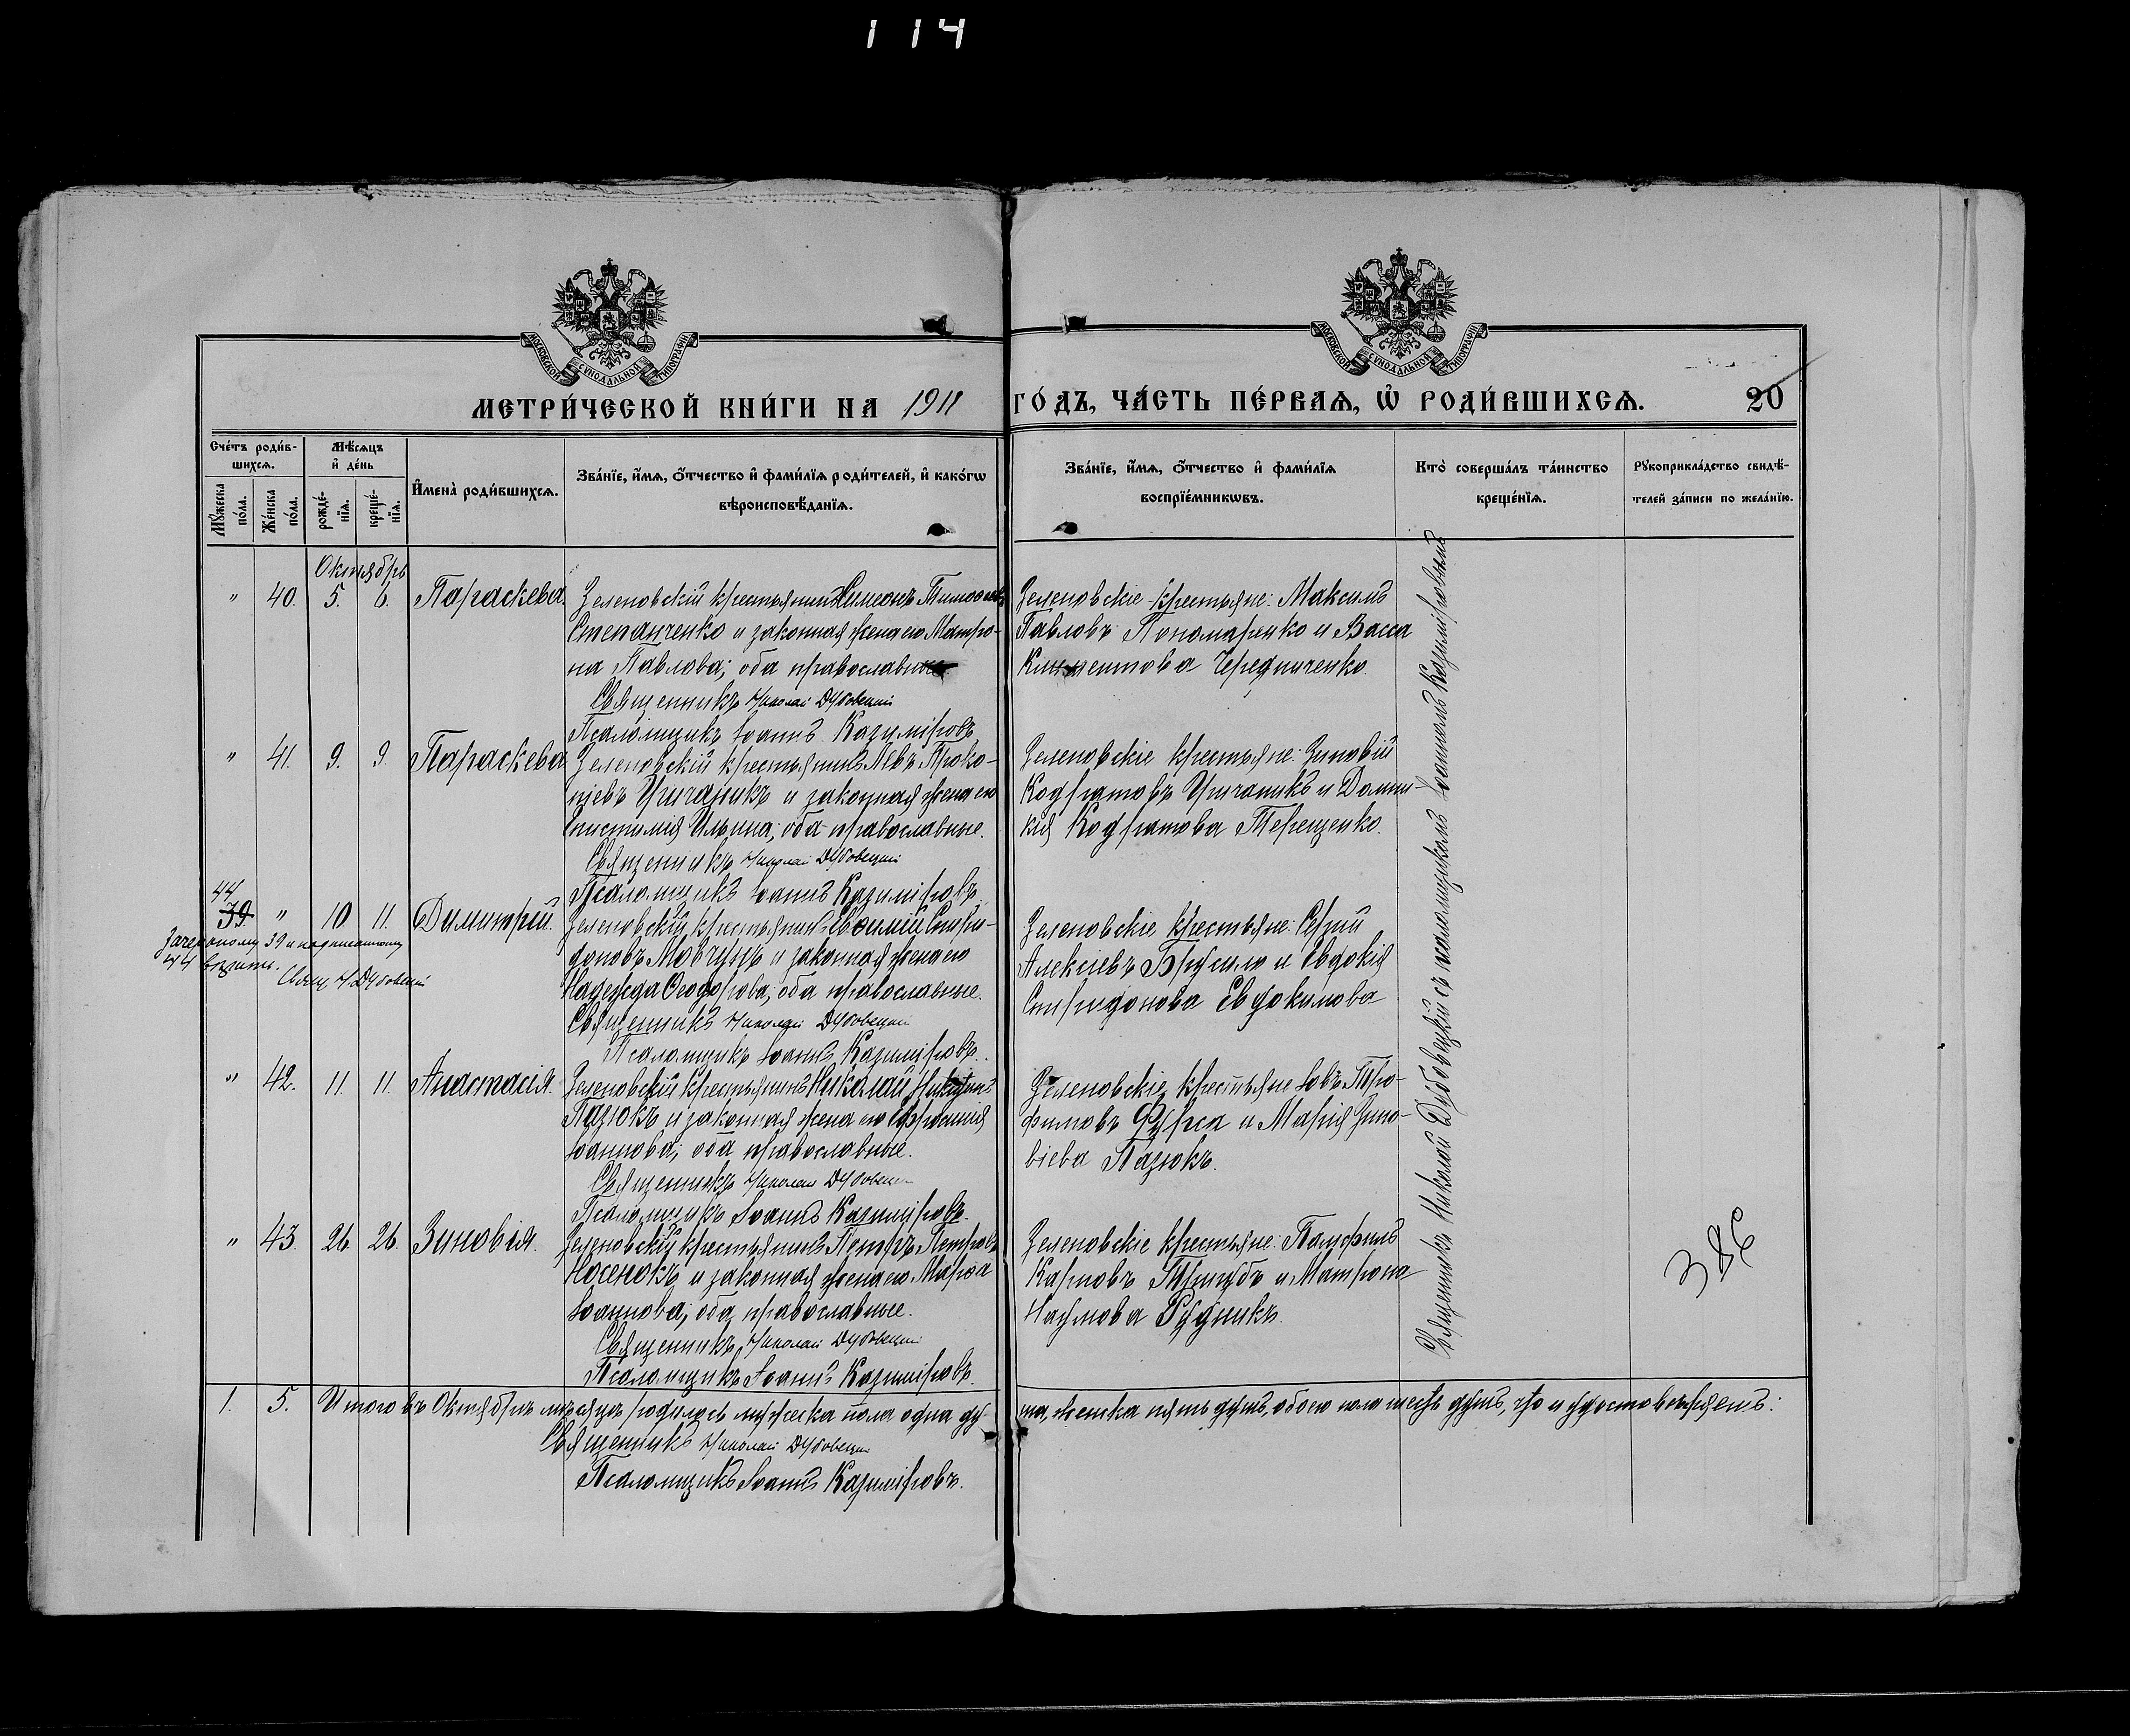 114
МОСКОВСКОЙ СУНОДАЛЬНОЙ ТИПОГРАФІИ
МОСКОВСКОЙ СУНОДАЛЬНОЙ ТИПОГРАФІИ
МЕТРИ́ЧЕСКОЙ КНИ́ГИ НА 1911 ГО́ДЪ, ЧА́СТЬ ПЕ́РВАѦ, Ѡ҆ РОДИ́ВШИХСѦ. 20
Сче́тъ роди́в-
шихсѧ.
Мꙋ́жеска по́ла.
Же́нска по́ла.
Мѣ́сѧцъ
и҆ де́нь
рожде́-
нїѧ.
креще́-
нїѧ.
И҆мена̀ роди́вшихсѧ.
Зва́нїе, и҆́мѧ, ѻ҆́тчество и҆ фами́лїѧ роди́телей, и҆ како́гѡ
вѣроисповѣ́данїѧ.
Зва́нїе, и҆́мѧ, ѻ҆́тчество и҆ фами́лїѧ
воспрїе́мникѡвъ.
Кто̀ соверша́лъ та́инство
креще́нїѧ.
Рꙋкоприкла́дство свидѣ́-
телей за́писи по жела́нїю.
Октябрь
" 40. 5. 6. Параскева. Зеленовскій крестьянинъ Симеонъ Тимоѳеевъ
Степанченко и законная жена его Матро-
на Павлова; оба православные.
Священникъ Николай Дубовецкій
Псаломщикъ Іоаннъ Казиміровъ
Зеленовскіе крестьяне: Максимъ
Павловъ Пономаренко и Васса
Климентова Чередниченко.
" 41. 9. 9. Параскева Зеленовскій крестьянинъ Левъ Проко-
піевъ Уричаникъ и законная жена его
Епистимія Ильина; оба православные.
Священникъ Николай Дубовецкій
Псаломщикъ Іоаннъ Казиміровъ.
Зеленовскіе крестьяне: Зиновій
Кодратовъ Уричаникъ и Домни-
кія Кодратова Терещенко.
44
39. " 10. 11. Димитрій. Зеленовскій крестьянинъ Евѳимій Спири-
доновъ Мовчунъ и законная жена его
Надежда Ѳеодорова; оба православные.
Священникъ Николай Дубовецкій
Псаломщикъ Іоаннъ Казиміровъ.
Зачеркнутому 39 и надписанному
44 вѣрить.
Свящ. Н. Дубовецкій
Зеленовскіе крестьяне: Сергій
Алексіевъ Брусило и Евдокія
Спиридонова Евдокимова
" 42. 11. 11. Анастасія. Зеленовскій крестьянинъ Николай Никитинъ
Пазюкъ и законная жена его Ефросинія
Іоаннова; оба православные.
Священникъ Николай Дубовецкій
Псаломщикъ Іоаннъ Казиміровъ.
Зеленовскіе крестьяне Іовъ Тро-
фимовъ Фурса и Марія Зино-
віева Пазюкъ.
" 43. 26. 26. Зиновія. Зеленовскій крестьянинъ Петръ Петровъ
Носенокъ и законная жена его Марѳа
Іоаннова; оба православные.
Священникъ Николай Дубовецкій
Псаломщикъ Іоаннъ Казиміровъ.
Зеленовскіе крестьяне: Памфилъ
Карповъ Тригубъ и Матрона
Наумова Рудникъ.
Священникъ Николай Дубовецкій съ псаломщикомъ Іоанномъ Казиміровымъ
386
1. 5. Итого въ Октябрѣ мѣсяцѣ родилось мужеска пола одна ду-
ша, женска пять душъ, обоего пола шесть душъ, что и удостовѣряемъ:
Священникъ Николай Дубовецкій
Псаломщикъ Іоаннъ Казиміровъ.